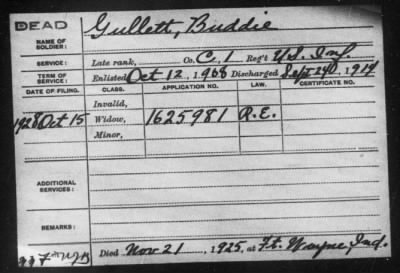 DEAD
NAME OF SOLDIER: Gullett, Buddie
SERVICE: Late rank, Co. C, 1 Reg't U.S. Inf.
TERM OF SERVICE: Enlisted Oct 12, 1908 Discharged Sept 24, 1919
DATE OF FILING. CLASS. APPLICATION NO. LAW. CERTIFICATE NO.
Invalid,
1928 Oct 15 Widow, 1625981 R.E.
Minor,
ADDITIONAL SERVICES:
REMARKS:
Died Nov 21, 1925, at Ft. Wayne, Ind.